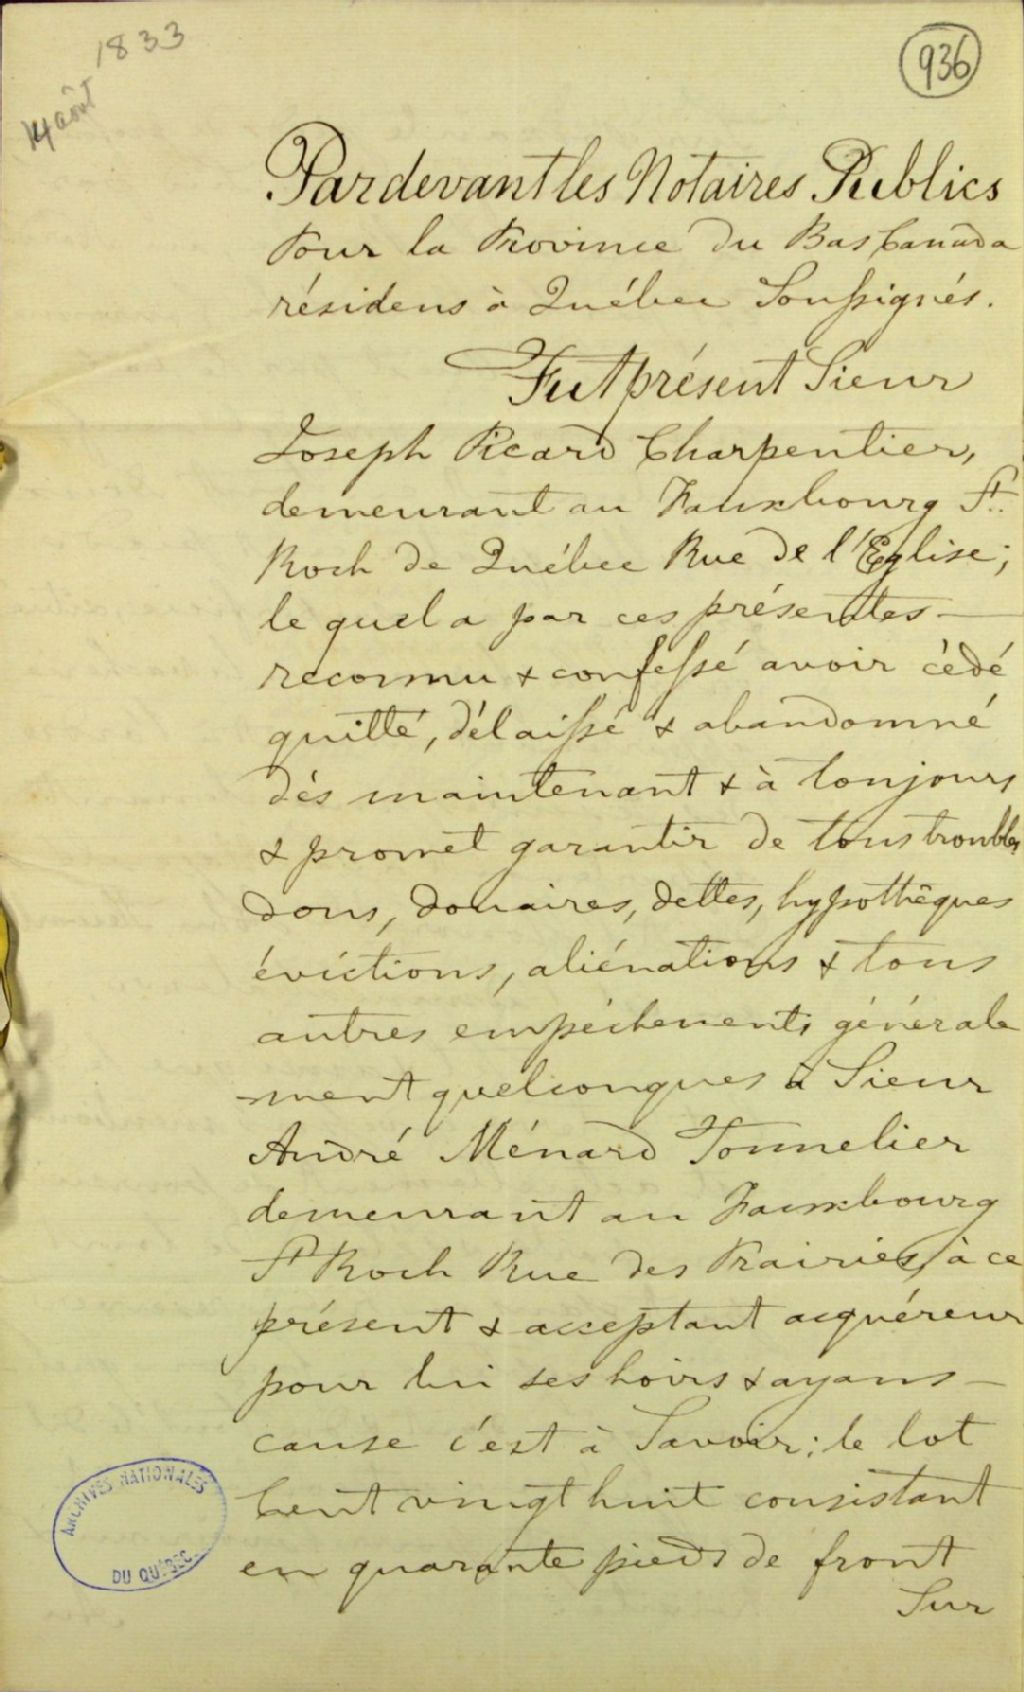 14 août 1833
936
Pardevant les Notaires Publics
Pour la Province du Bas Canada
résidens à Québec Soussignés.
Fut présent Sieur
Joseph Picard Charpentier,
demeurant au Fauxbourg St.
Roch de Québec Rue de l'Eglise;
le quel a par ces présentes
reconnu & confessé avoir cédé
quitté, délaissé & abandonné
dés maintenant & à toujours
& promet garantir de tous troubles
dons, douaires, dettes, hypothêques
évictions, aliénations & tous
autres empéchements générale
-ment quelconques à Sieur
André Ménard Tonnelier
demeurant au Fauxbourg
St Roch Rue des Prairies, à ce
présent & acceptant acquéreur
pour lui ses hoirs & ayans
cause c'est à Savoir: le lot
Cent vingt huit consistant
en quarante pieds de front
Sur
ARCHIVES NATIONALES
DU QUÉBEC